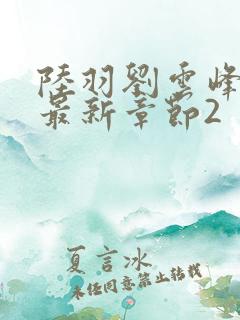 陸羽劉雲峰
最新章節2
夏言冰
未经同意禁止转载